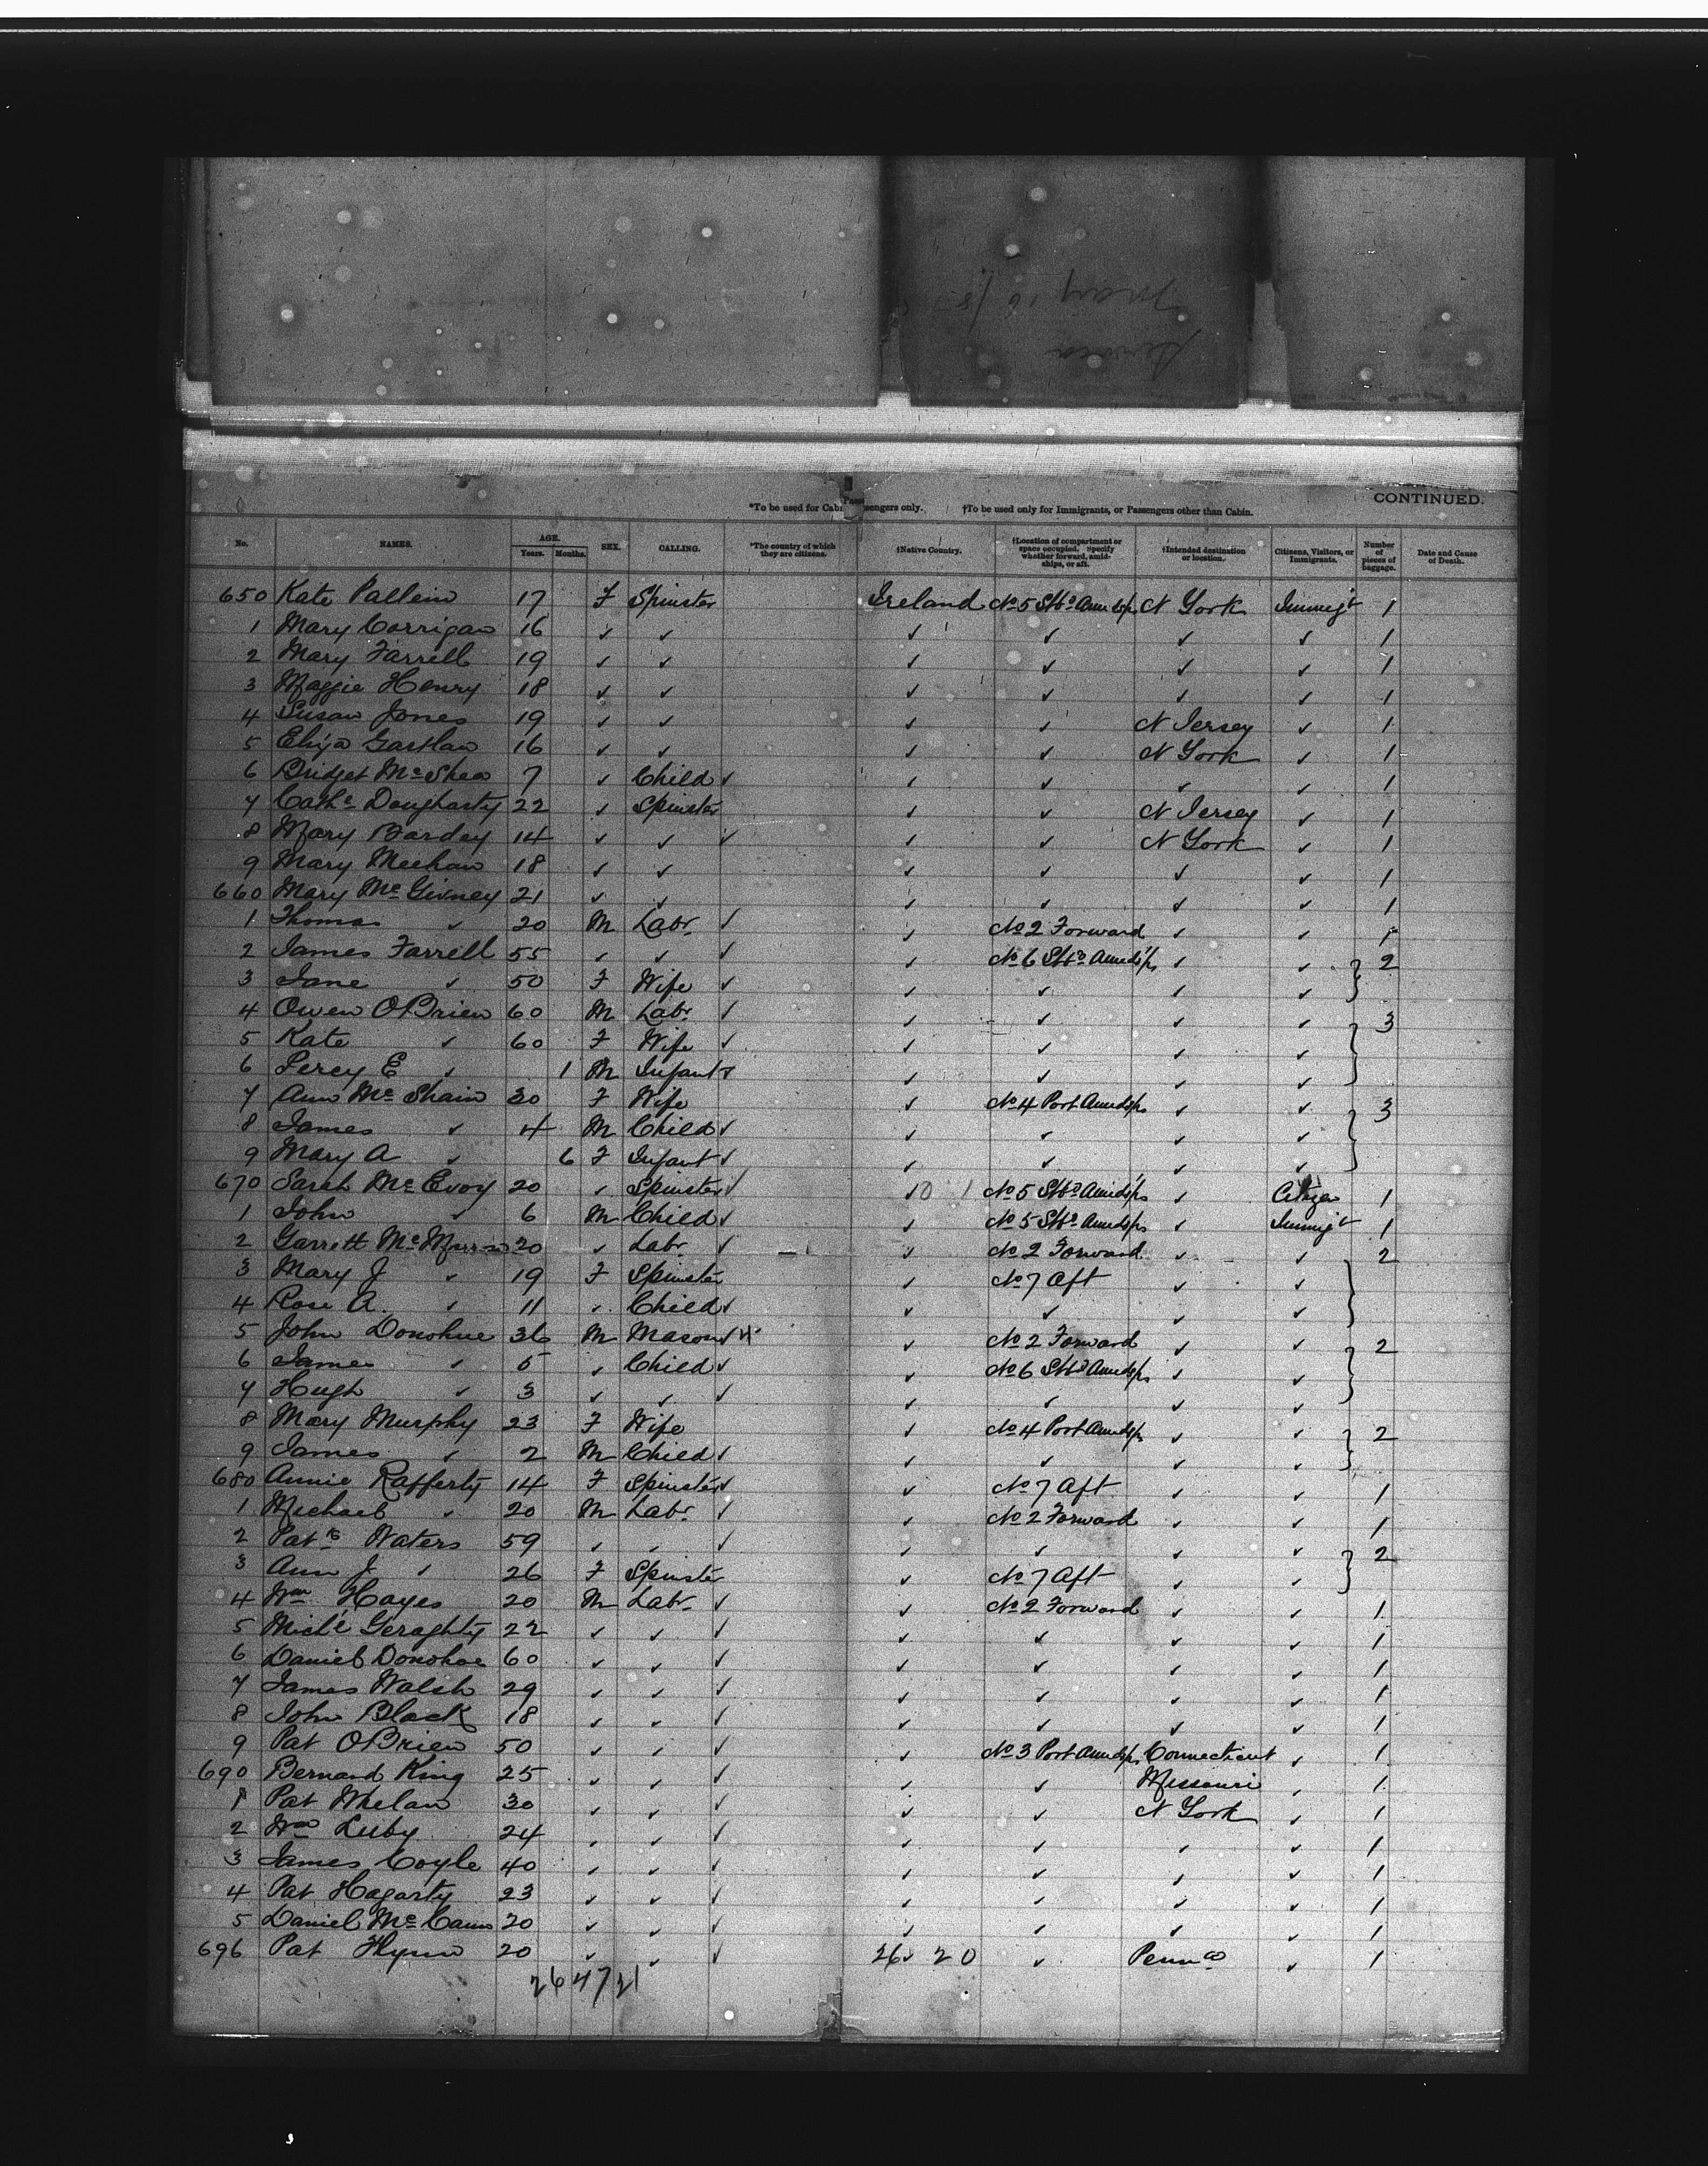 May 16/8
CONTINUED.
*To be used for Cabin Passengers only. †To be used only for Immigrants, or Passengers other than Cabin.
No. NAMES. AGE. Years. Months. SEX. CALLING. *The country of which they are citizens. †Native Country. †Location of compartment or space occupied. Specify whether forward, amidships, or aft. †Intended destination or location. Citizens, Visitors, or Immigrants. Number of pieces of baggage. Date and Cause of Death.
650 Kate Pallein 17 F Spinster Ireland No 5 Stbd Amidsps N York Immigt 1
1 Mary Corrigan 16 ✓ ✓ ✓ ✓ ✓ ✓ 1
2 Mary Farrell 19 ✓ ✓ ✓ ✓ ✓ ✓ 1
3 Maggie Henry 18 ✓ ✓ ✓ ✓ ✓ ✓ 1
4 Susan Jones 19 ✓ ✓ ✓ ✓ N Jersey ✓ 1
5 Eliza Gartlan 16 ✓ ✓ ✓ ✓ N York ✓ 1
6 Bridget McShea 7 ✓ Child ✓ ✓ ✓ ✓ ✓ 1
7 Cathe Dougharty 22 ✓ Spinster ✓ ✓ N Jersey ✓ 1
8 Mary Bardey 14 ✓ ✓ ✓ ✓ ✓ N York ✓ 1
9 Mary Meehan 18 ✓ ✓ ✓ ✓ ✓ ✓ 1
660 Mary McGivney 21 ✓ ✓ ✓ ✓ ✓ ✓ 1
1 Thomas ✓ 20 M Labr ✓ ✓ No 2 Forward ✓ ✓ 1
2 James Farrell 55 ✓ ✓ ✓ ✓ No 6 Stbd Amidsps ✓ ✓ } 2
3 Jane ✓ 50 F Wife ✓ ✓ ✓ ✓ ✓
4 Owen OBrien 60 M Labr ✓ ✓ ✓ ✓ ✓ } 3
5 Kate ✓ 60 F Wife ✓ ✓ ✓ ✓ ✓
6 Percy E ✓ 1 M Infant ✓ ✓ ✓ ✓ ✓
7 Ann McShain 30 F Wife ✓ No 4 Port Amidsps ✓ ✓ } 3
8 James ✓ 4 M Child ✓ ✓ ✓ ✓ ✓
9 Mary A ✓ 6 F Infant ✓ ✓ ✓ ✓ ✓
670 Sarah McEvoy 20 ✓ Spinster ✓ ✓ 0 1 No 5 Stbd Amidsps ✓ Citizen 1
1 John ✓ 6 M Child ✓ ✓ No 5 Stbd Amidsps ✓ Immigt 1
2 Garrett 20 ✓ Labr ✓ ✓ No 2 Forward ✓ ✓ } 2
3 Mary J ✓ 19 F Spinster ✓ No 7 Aft ✓ ✓
4 Rose A. ✓ 11 ✓ Child ✓ ✓ ✓ ✓ ✓
5 John Donohue 36 M Mason ✓ ✓ No 2 Forward ✓ ✓ } 2
6 James ✓ 5 ✓ Child ✓ ✓ No 6 Stbd Amidsps ✓ ✓
7 Hugh ✓ 3 ✓ ✓ ✓ ✓ ✓ ✓ ✓
8 Mary Murphy 23 F Wife ✓ No 4 Port Amidsps ✓ ✓ } 2
9 James ✓ 2 M Child ✓ ✓ ✓ ✓ ✓
680 Annie Rafferty 14 F Spinster ✓ ✓ No 7 Aft ✓ ✓ 1
1 Michael ✓ 20 M Labr ✓ ✓ No 2 Forward ✓ ✓ 1
2 Patk Waters 59 ✓ ✓ ✓ ✓ ✓ ✓ ✓ } 2
3 Ann J ✓ 26 F Spinster ✓ No 7 Aft ✓ ✓
4 Wm Hayes 20 M Labr ✓ ✓ No 2 Forward ✓ ✓ 1
5 Michl Geraghty 22 ✓ ✓ ✓ ✓ ✓ ✓ ✓ 1
6 Daniel Donohoe 60 ✓ ✓ ✓ ✓ ✓ ✓ ✓ 1
7 James Walsh 29 ✓ ✓ ✓ ✓ ✓ ✓ ✓ 1
8 John Black 18 ✓ ✓ ✓ ✓ ✓ ✓ ✓ 1
9 Pat OBrien 50 ✓ ✓ ✓ ✓ No 3 Port Amidsps Connecticut ✓ 1
690 Bernard King 25 ✓ ✓ ✓ ✓ ✓ Missouri ✓ 1
1 Pat Whelan 30 ✓ ✓ ✓ ✓ ✓ N York ✓ 1
2 Wm Luby 24 ✓ ✓ ✓ ✓ ✓ ✓ ✓ 1
3 James Coyle 40 ✓ ✓ ✓ ✓ ✓ ✓ ✓ 1
4 Pat Hagarty 23 ✓ ✓ ✓ ✓ ✓ ✓ ✓ 1
5 Daniel McCann 20 ✓ ✓ ✓ ✓ ✓ ✓ ✓ 1
696 Pat Flynn 20 ✓ ✓ ✓ 26 ✓ 20 ✓ Penna ✓ 1
26 47 21